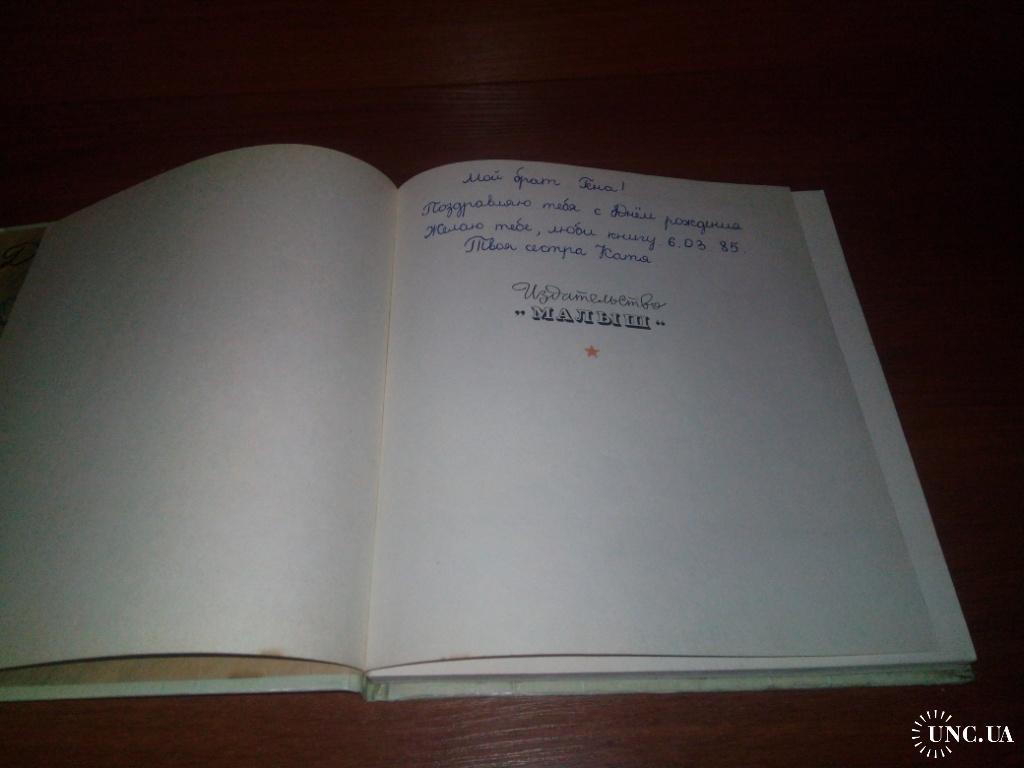 Мой брат Гена!
Поздравляю тебя с Днём рождения
Желаю тебе, люби книгу. 6.03. 85.
Твоя сестра Катя
Издательство
„МАЛЫШ“
UNC.UA